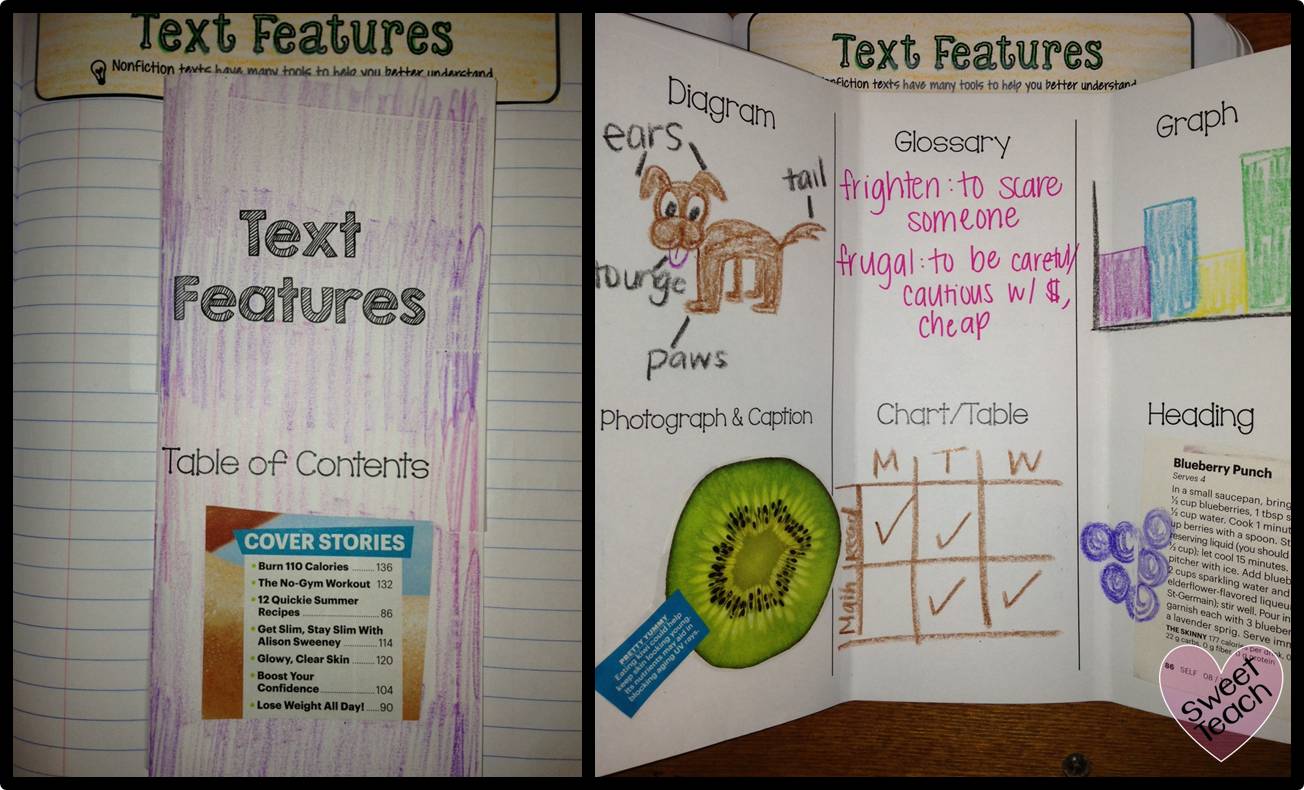 Text Features
Nonfiction texts have many tools to help you better understand
Text
Features
Table of Contents
COVER STORIES
• Burn 110 Calories ........ 136
• The No-Gym Workout 132
• 12 Quickie Summer
Recipes ........ 86
• Get Slim, Stay Slim With
Alison Sweeney ........ 114
• Glowy, Clear Skin ....... 120
• Boost Your
Confidence ........ 104
• Lose Weight All Day! .....90
Text Features
nfiction texts have many tools to help you better understand
Diagram
ears
tail
tounge
paws
Glossary
frighten: to scare
someone
frugal: to be careful/
cautious w/ $,
cheap
Graph
Photograph & Caption
PRETTY YUMMY
Eating kiwi could help
keep skin looking young.
Its nutrients may aid in
blocking aging UV rays.
Chart/Table
M T W
Read
Math
Heading
Blueberry Punch
Serves 4
In a small saucepan, bring
½ cup blueberries, 1 tbsp s
½ cup water. Cook 1 minut
up berries with a spoon. St
reserving liquid (you should
cup); let cool 15 minutes.
pitcher with ice. Add blueb
2 cups sparkling water and
elderflower-flavored liqueu
St-Germain); stir well. Pour in
garnish each with 3 blueber
a lavender sprig. Serve imm
THE SKINNY 177 calories per drink, 0
22 g carbs, 0 g fiber, 0 g protein
86 SELF 08/
Sweet
Teach